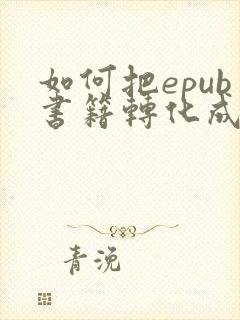 如何把epub
書籍轉化成
青浼